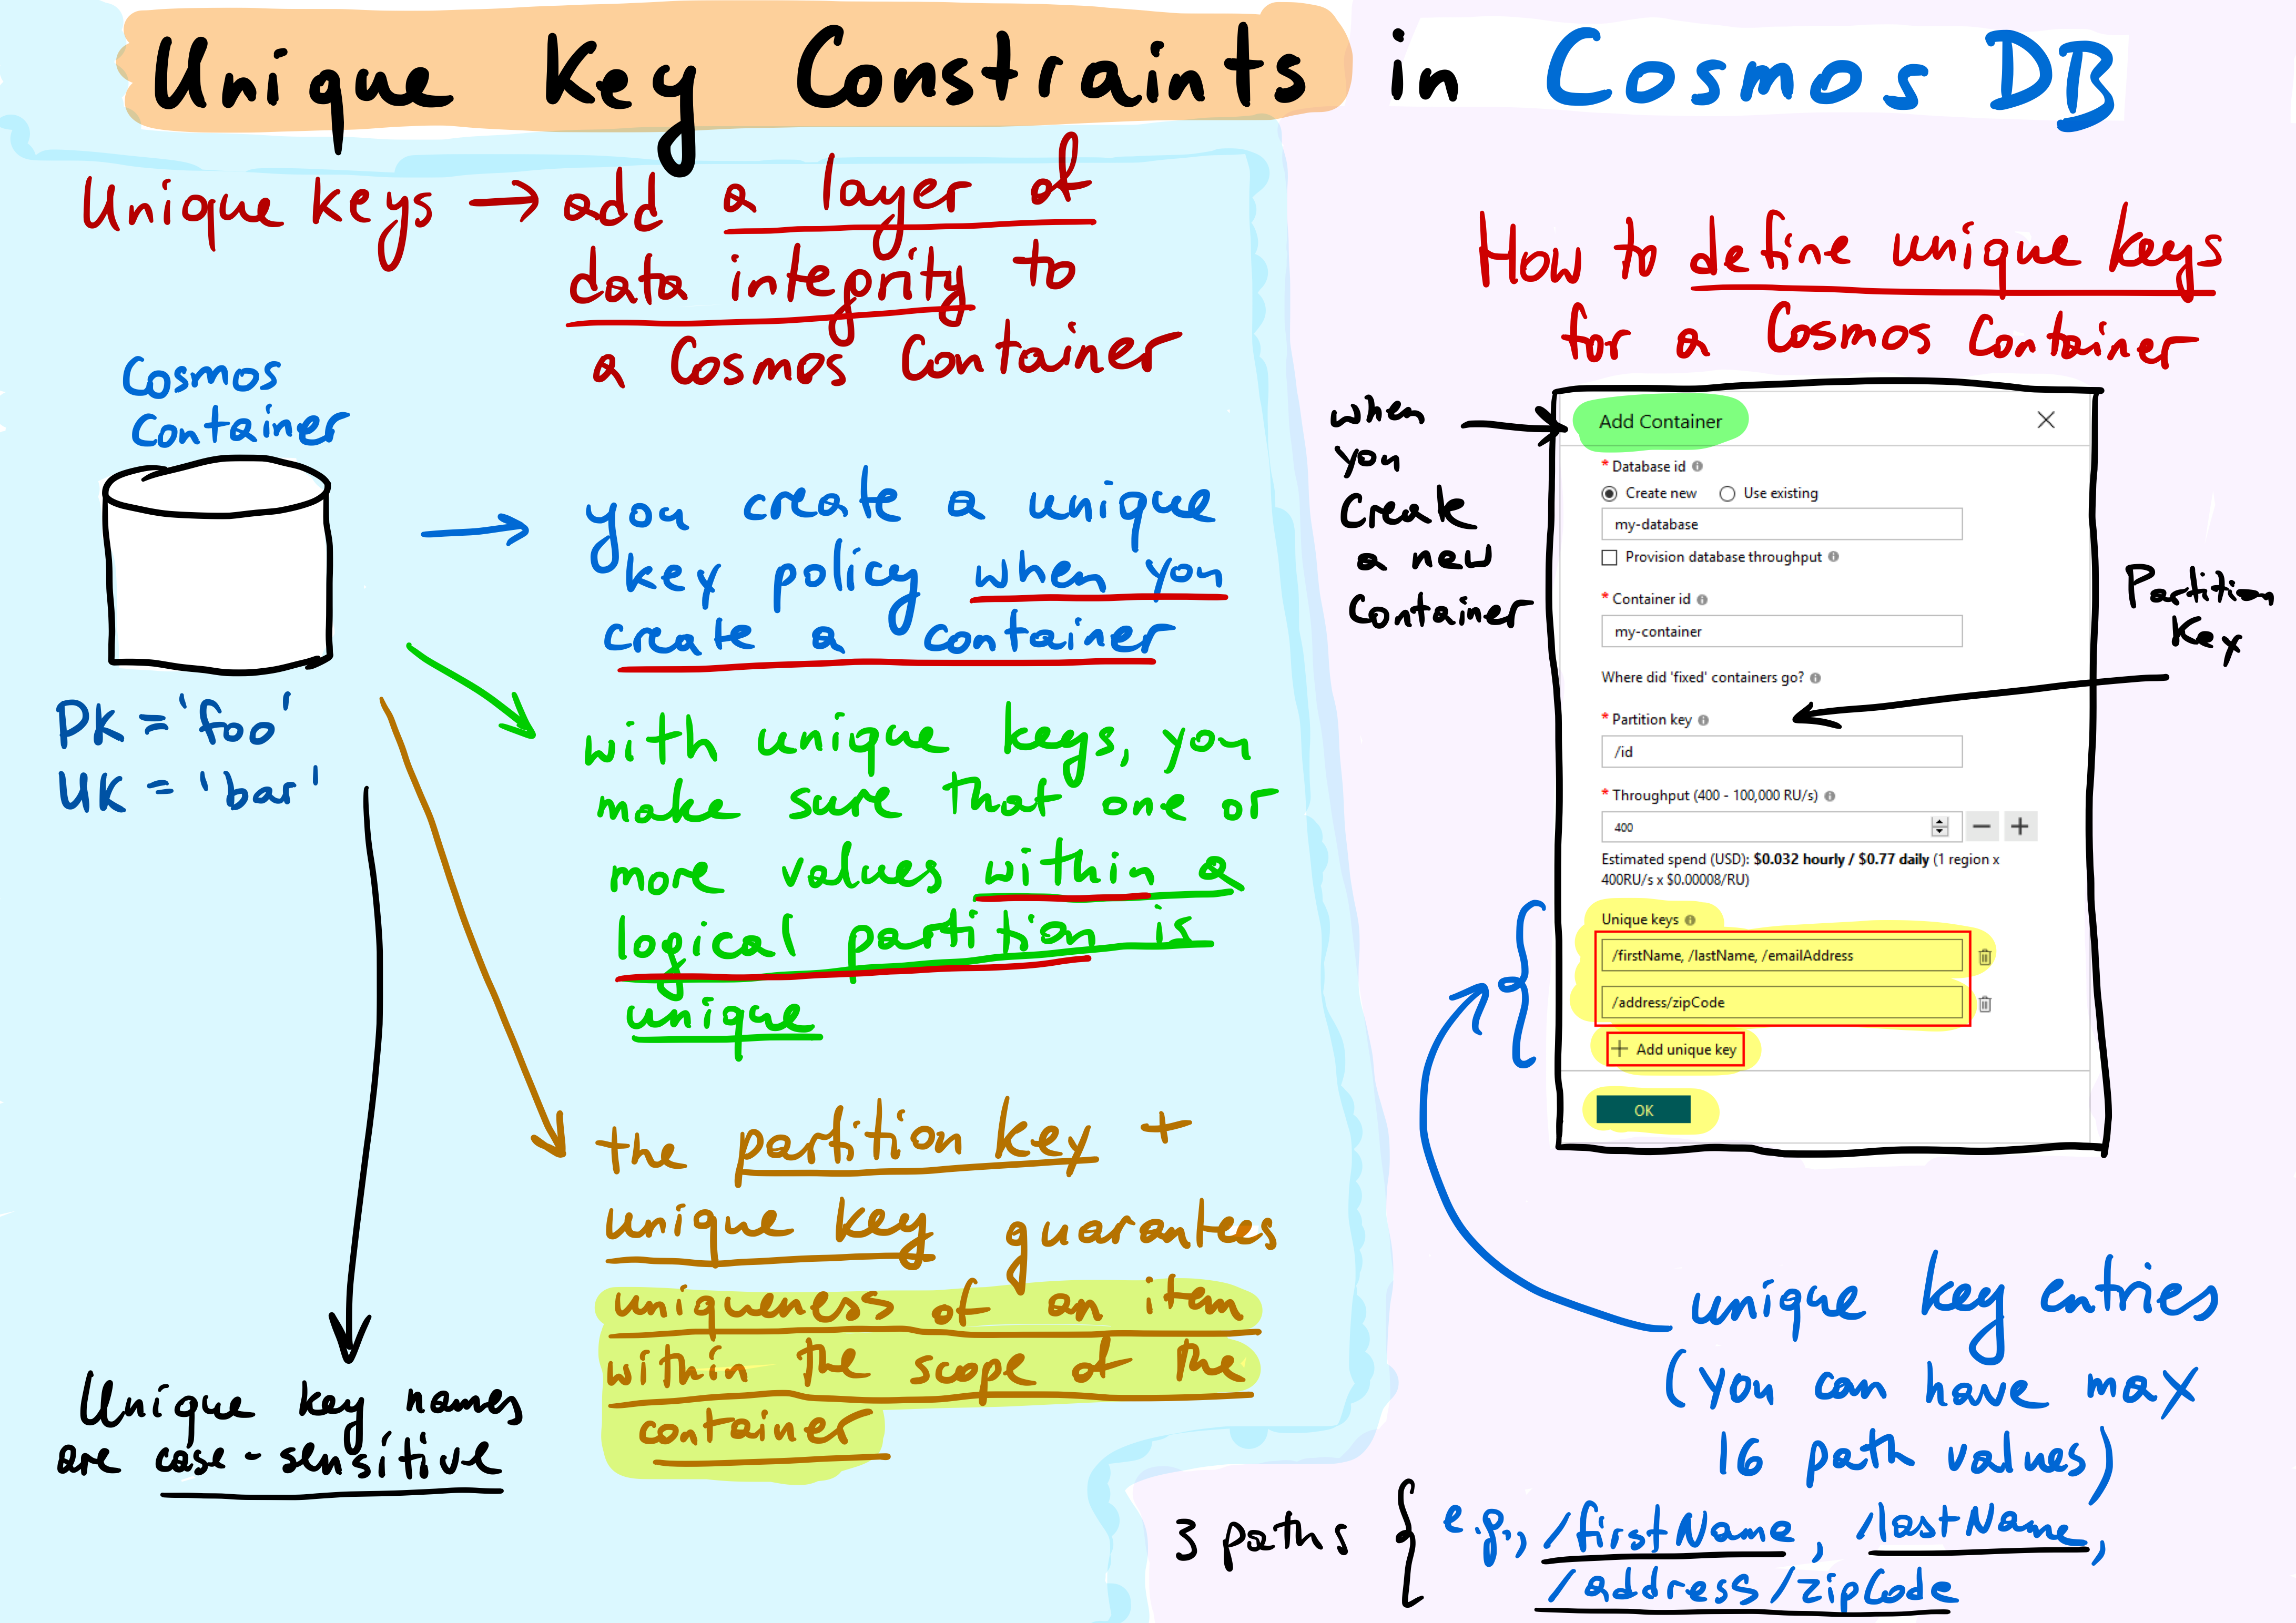 Unique Key Constraints in Cosmos DB
Unique keys → add a layer of
data integrity to
a Cosmos Container
Cosmos
Container
PK = 'foo'
UK = 'bar'
you create a unique
key policy when you
create a container
with unique keys, you
make sure that one or
more values within a
logical partition is
unique
the partition key +
unique key guarantees
uniqueness of an item
within the scope of the
container
Unique key names
are case-sensitive
How to define unique keys
for a Cosmos Container
when
you
Create
a new
Container
Add Container
* Database id
Create new Use existing
my-database
Provision database throughput
* Container id
my-container
Where did 'fixed' containers go?
* Partition key
/id
* Throughput (400 - 100,000 RU/s)
400
Estimated spend (USD): $0.032 hourly / $0.77 daily (1 region x
400RU/s x $0.00008/RU)
Unique keys
/firstName, /lastName, /emailAddress
/address/zipCode
+ Add unique key
OK
Partition
Key
unique key entries
(you can have max
16 path values)
3 paths { e.g., /firstName, /lastName,
/address/zipCode